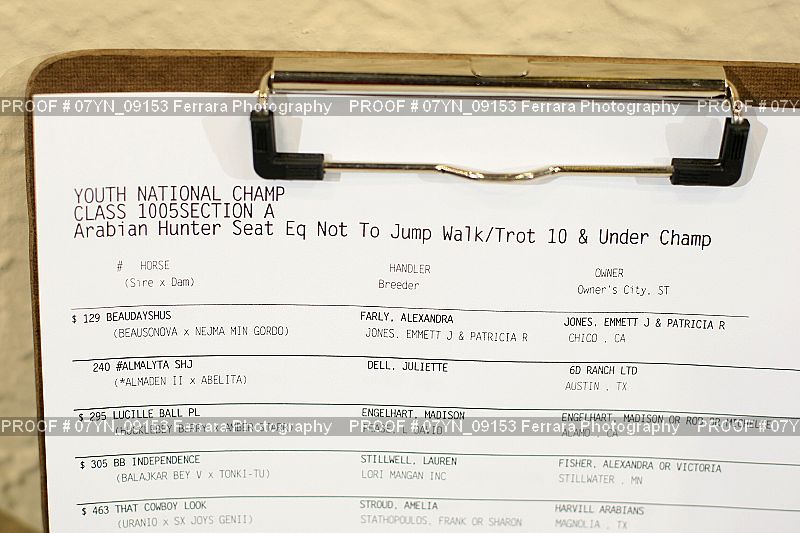 PROOF # 07YN_09153 Ferrara Photography PROOF # 07YN_09153 Ferrara Photography PROOF # 07YN
YOUTH NATIONAL CHAMP
CLASS 1005SECTION A
Arabian Hunter Seat Eq Not To Jump Walk/Trot 10 & Under Champ
# HORSE HANDLER OWNER
(Sire x Dam) Breeder Owner's City, ST
$ 129 BEAUDAYSHUS FARLY, ALEXANDRA JONES, EMMETT J & PATRICIA R
(BEAUSONOVA x NEJMA MIN GORDO) JONES, EMMETT J & PATRICIA R CHICO , CA
240 #ALMALYTA SHJ DELL, JULIETTE 6D RANCH LTD
(*ALMADEN II x ABELITA) AUSTIN , TX
$ 295 LUCILLE BALL PL ENGELHART, MADISON ENGELHART, MADISON OR ROB OR MICHELLE
(HUCKLEBEY BERRY x AMBER STARR) DAVID ALAMO , CA
PROOF # 07YN_09153 Ferrara Photography PROOF # 07YN_09153 Ferrara Photography PROOF # 07YN
$ 305 BB INDEPENDENCE STILLWELL, LAUREN FISHER, ALEXANDRA OR VICTORIA
(BALAJKAR BEY V x TONKI-TU) LORI MANGAN INC STILLWATER , MN
$ 463 THAT COWBOY LOOK STROUD, AMELIA HARVILL ARABIANS
(URANIO x SX JOYS GENII) STATHOPOULDS, FRANK OR SHARON MAGNOLIA , TX